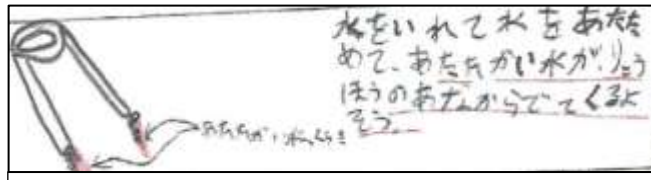 水をいれて水をあたた
めて、あたたかい水が、りょう
ほうのあなからでてくるよ
そう。
あたたかい水が